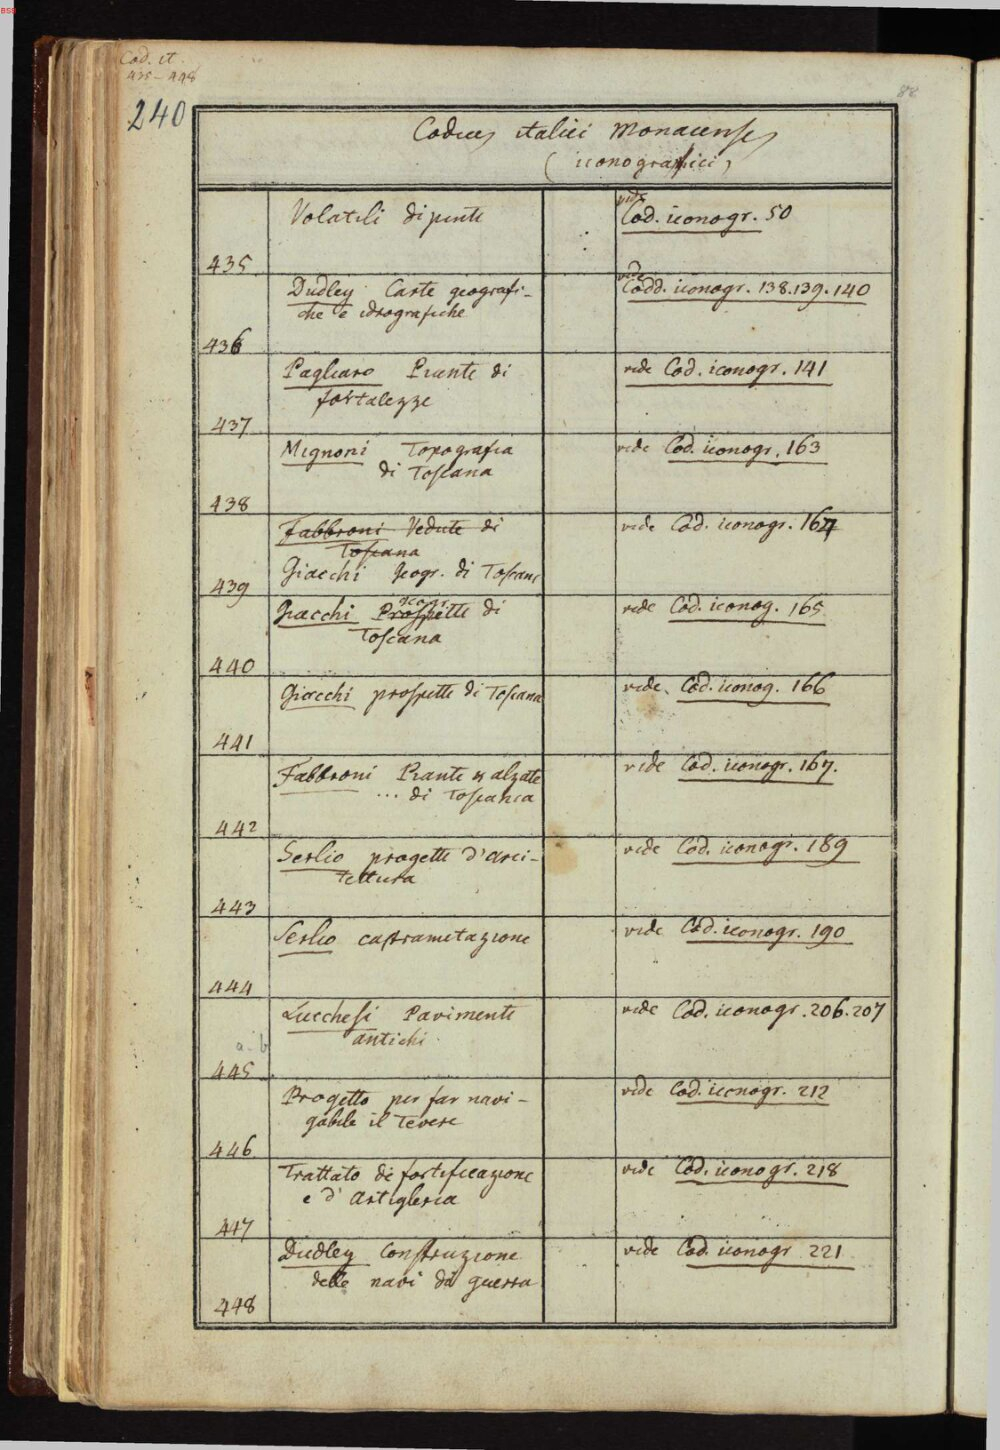 BSB
Cod. it.
435-448
240
88
Codices italici Monacenses
(iconografici)
Volatili dipinti
vide
Cod. iconogr. 50
435
Dudley Carte geografi-
che e idrografiche
vide
Codd. iconogr. 138.139.140
436
Pagliaro Piante di
fortalezze
vide Cod. iconogr. 141
437
Mignoni Topografia
di Toscana
vide Cod. iconogr. 163
438
Fabbroni Vedute di
Toscana
Giacchi Geogr. di Toscan
vide Cod. iconogr. 164
439
Giacchi Prospette di
geogr.
Toscana
vide Cod. iconog. 165
440
Giacchi prospette di Toscana
vide Cod. iconog. 166
441
Fabbroni Piante alzate
... di Toscana
vide Cod. iconogr. 167.
442
Serlio progetti d'arci-
tettura
vide Cod. iconogr. 189
443
Serlio castrametazione
vide Cod. iconogr. 190
444
Lucchesi Pavimenti
antichi
vide Cod. iconogr. 206.207
a-b
445
Progetto per far navi-
gabile il Tevere
vide Cod. iconogr. 212
446
Trattato di fortificazione
e d'Artigleria
vide Cod. iconogr. 218
447
Dudley Construzione
delle navi da guerra
vide Cod. iconogr 221
448